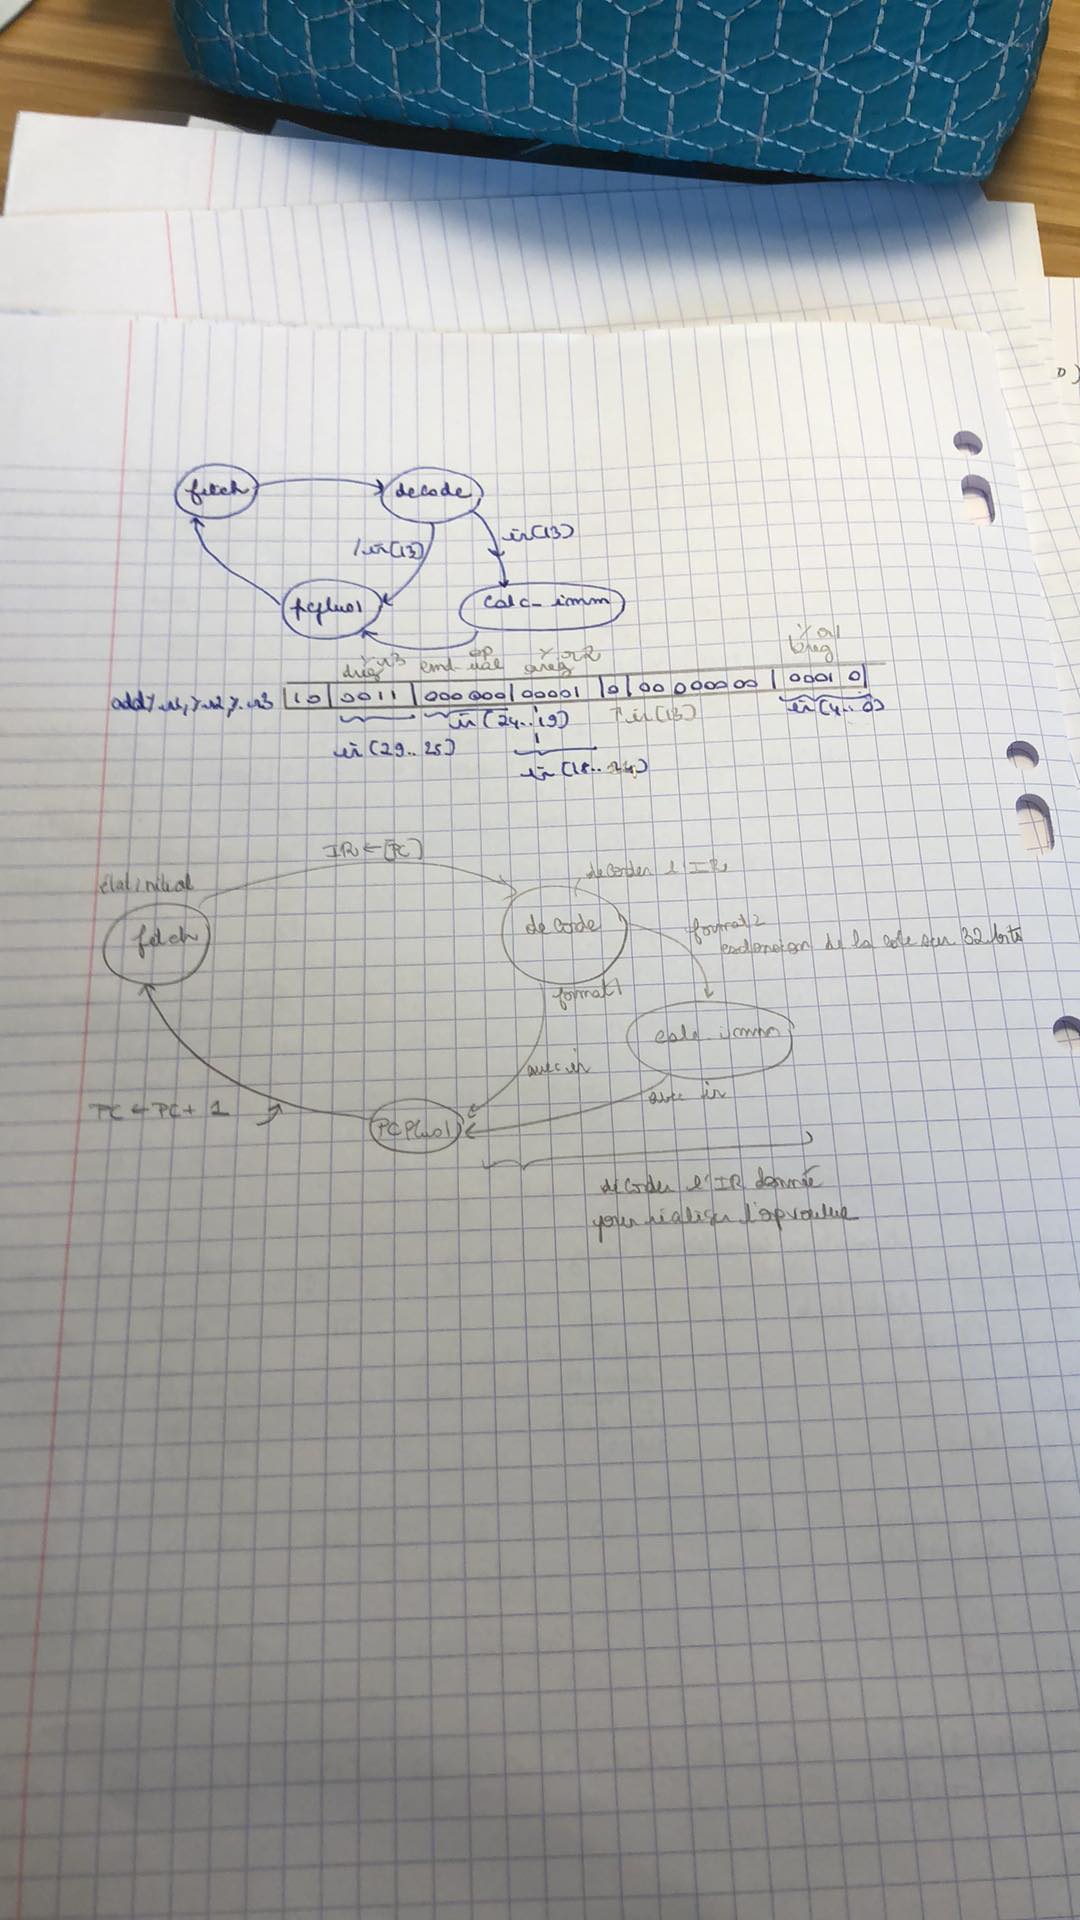 fetch
decode
/ir(13)
ir(13)
pcplus1
calc_imm
%r3
dreg
cmd
op
ual
%r2
areg
%r1
breg
add %r1, %r2, %r3 | 10 | 0011 | 000000 | 00001 | 0 | 00000000 | 00010 |
ir(29..25)
ir(24..19)
ir(18..14)
↑ ir(13)
ir(4..0)
IR ← [PC]
décoder l'IR
état initial
fetch
decode
format 2
extension de la cste sur 32 bits
format 1
calc_imm
avec ir
avec ir
PC ← PC + 1
PCPlus1
décoder l'IR donnée
pour réaliser l'op voulue